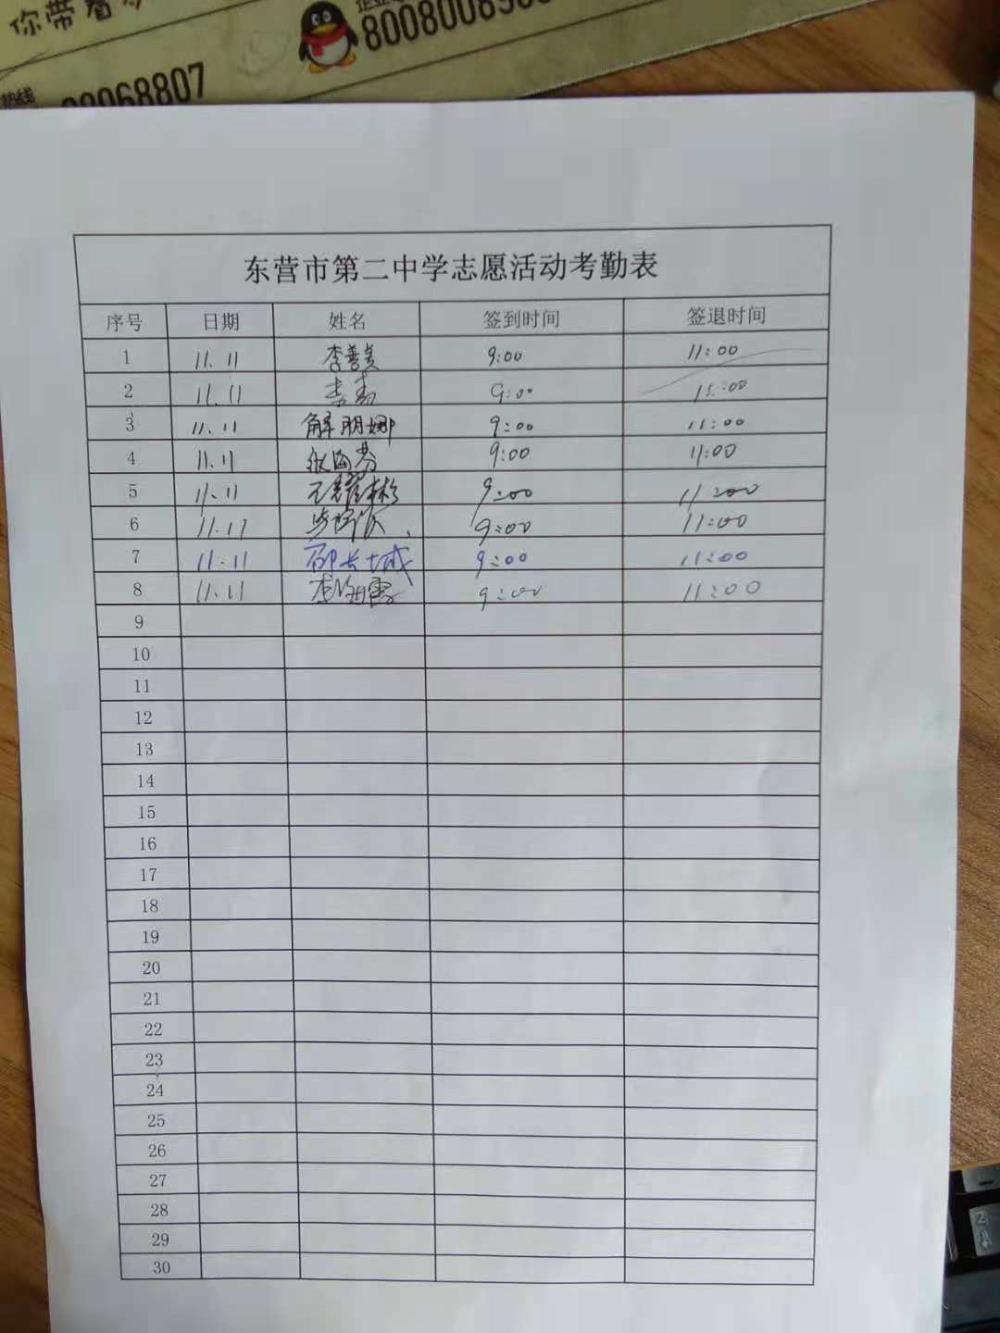 你带着
8008008
热线
0068807
东营市第二中学志愿活动考勤表
序号 日期 姓名 签到时间 签退时间
1 11.11 李善美 9:00 11:00
2 11.11 李 9:00 11:00
3 11.11 解朋娜 9:00 11:00
4 11.11 张海芬 9:00 11:00
5 11.11 王耀彬 9:00 11:00
6 11.11 9:00 11:00
7 11.11 邵长城 9:00 11:00
8 11.11 李 9:00 11:00
9
10
11
12
13
14
15
16
17
18
19
20
21
22
23
24
25
26
27
28
29
30